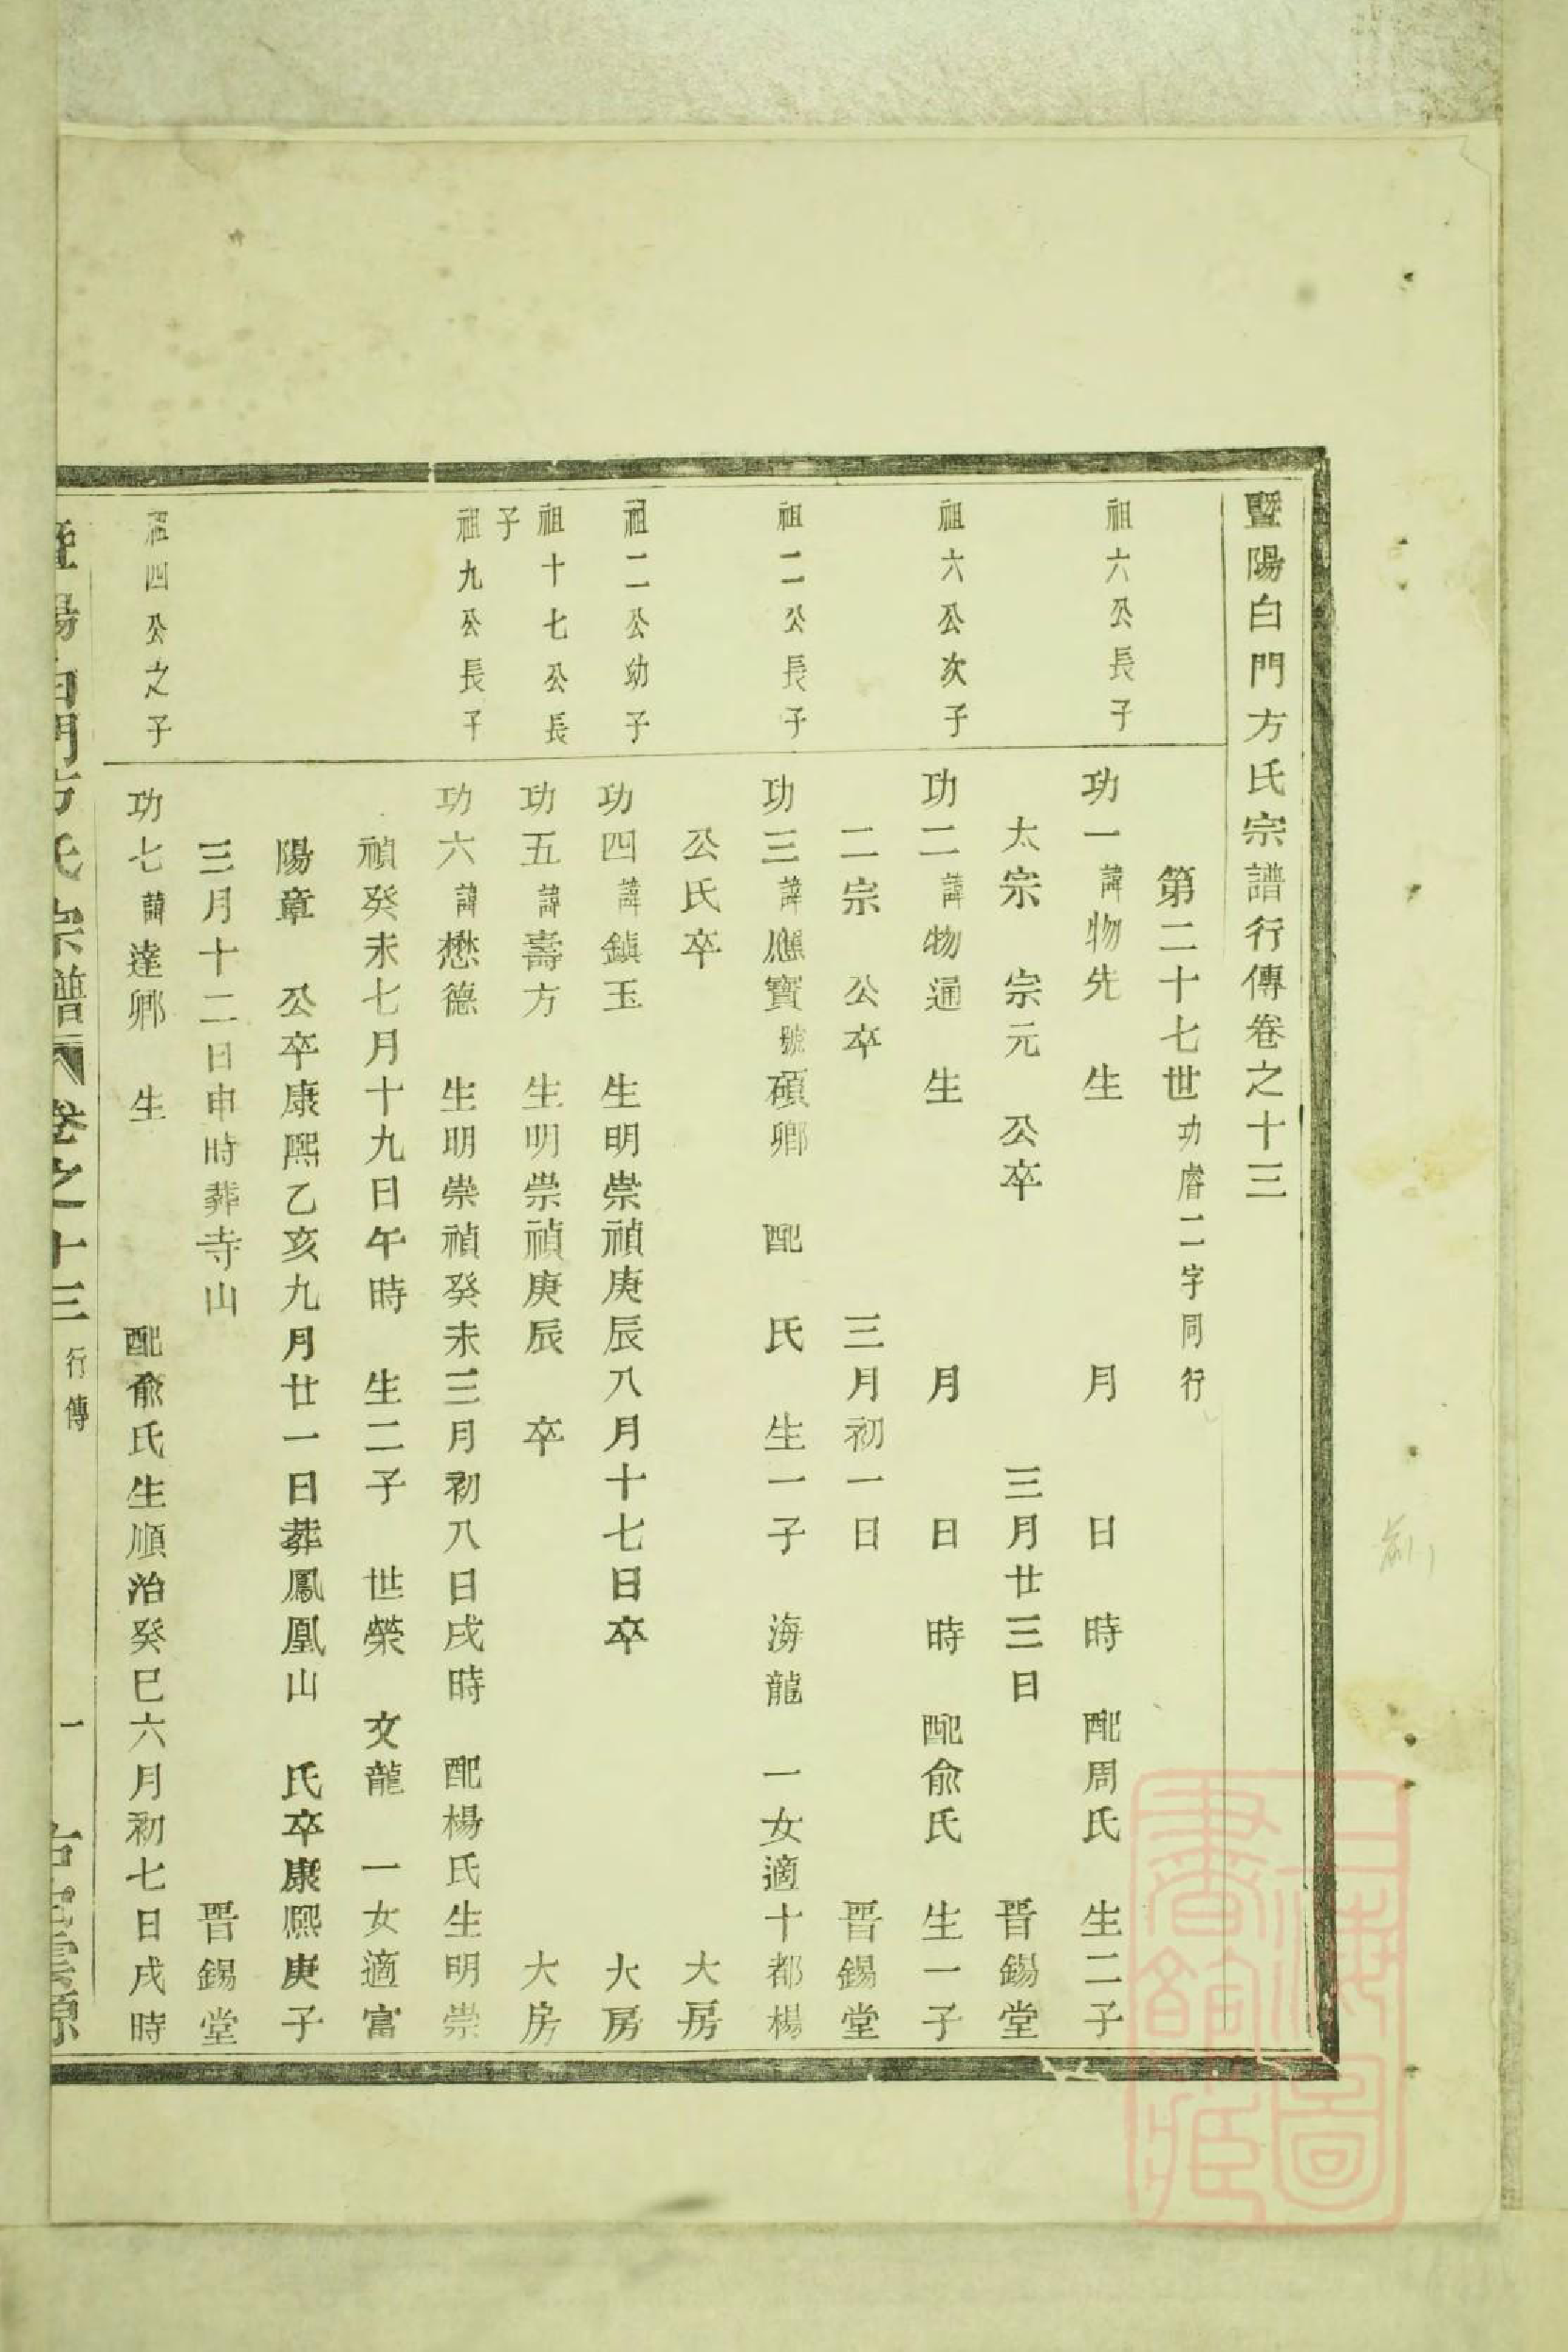 暨陽白門方氏宗譜行傳卷之十三
第二十七世功睿二字同行
祖六公長子
功一諱物先 生 月 日 時 配周氏 生二子
太宗 宗元 公卒 三月廿三日 晋錫堂
祖六公次子
功二諱物通 生 月 日 時 配俞氏 生一子
二宗 公卒 三月初一日 晋錫堂
祖二公長子
功三諱應寳號碩卿 配 氏 生一子 海龍 一女適十都楊
公氏卒 大房
祖二公幼子
功四諱鎮玉 生明崇禎庚辰八月十七日卒 大房
祖十七公長
子
功五諱壽方 生明崇禎庚辰 卒 大房
祖九公長子
功六諱懋德 生明崇禎癸未三月初八日戌時 配楊氏生明崇
禎癸未七月十九日午時 生二子 世榮 文龍 一女適富
陽章 公卒康熙乙亥九月廿一日葬鳳凰山 氏卒康熙庚子
三月十二日申時葬寺山 晋錫堂
祖四公之子
功七諱達卿 生 配俞氏生順治癸巳六月初七日戌時
暨陽白門方氏宗譜 卷之十三 行傳 一
上海圖書館藏